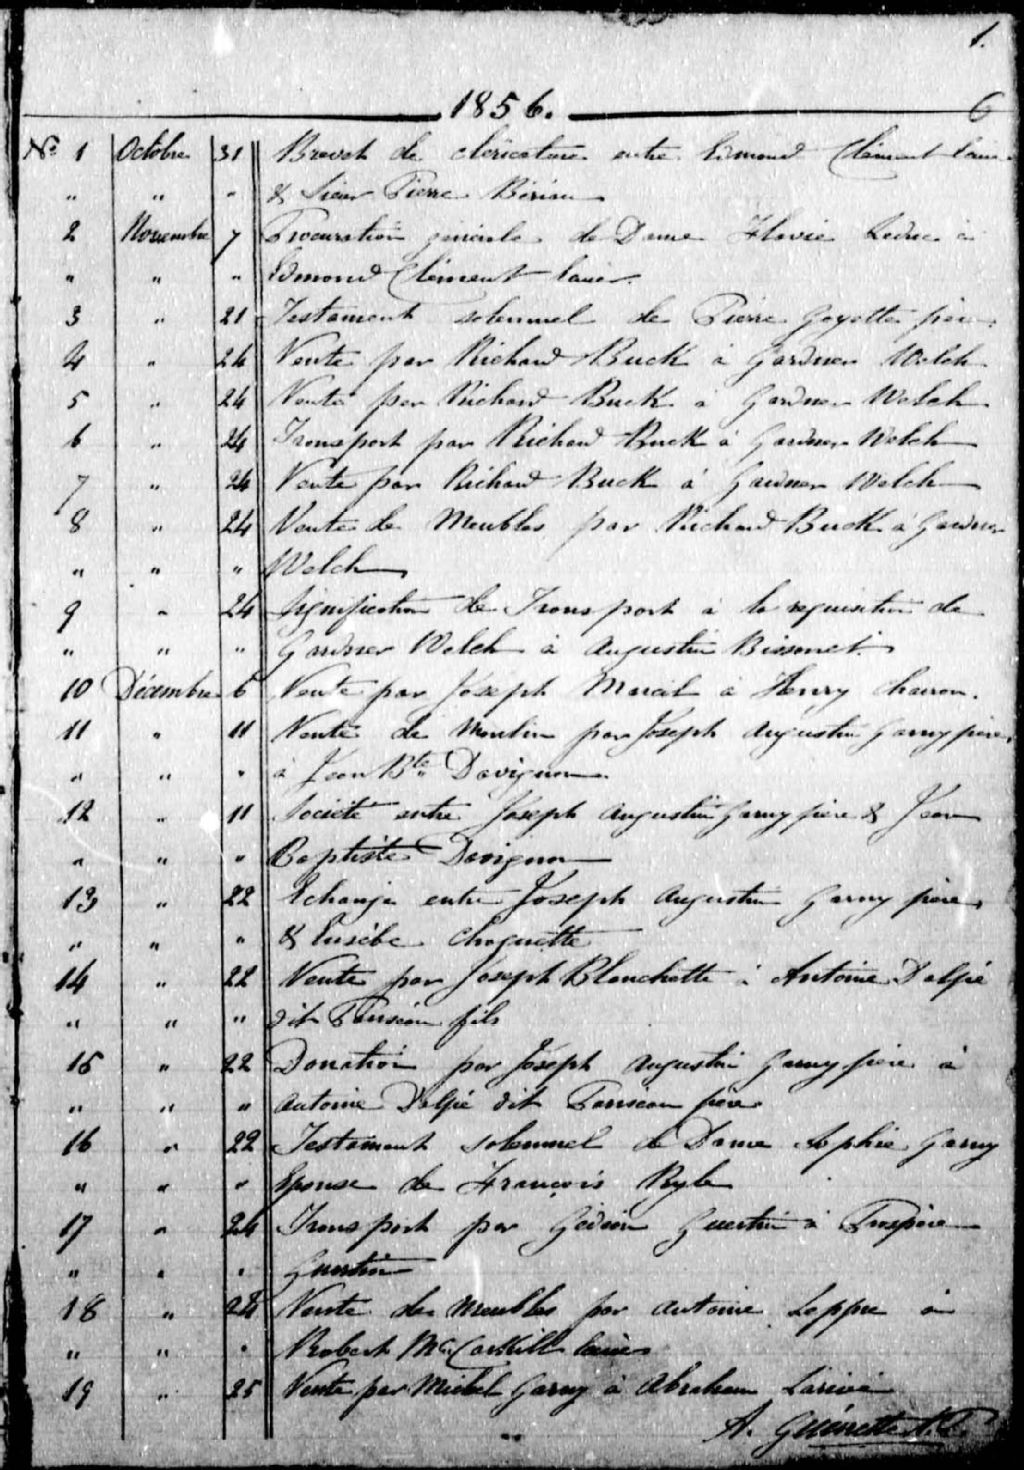 1.
1856. 6
No. 1 Octobre 31 Brevet de cléricature entre Edmond Clément
" " " & Sieur Pierre Bériau
2 Novembre 7 Procuration générale de Dame Flavie Leduc à
" " " Edmond Clément
3 " 21 Testament solennel de Pierre Goyette père
4 " 24 Vente par Richard Buck à Gardner Welch
5 " 24 Vente par Richard Buck à Gardner Welch
6 " 24 Transport par Richard Buck à Gardner Welch
7 " 24 Vente par Richard Buck à Gardner Welch
8 " 24 Vente de Meubles par Richard Buck à Gardner
" " " Welch
9 " 24 Signification de Transport à la requisition de
" " " Gardner Welch à Augustin Bissonet
10 Décembre 6 Vente par Joseph Marcil à Henry Charron.
11 " 11 Vente de Moulin par Joseph Augustin Garny père
" " " à Jean Bte Davignon
12 " 11 Société entre Joseph Augustin Garny père & Jean
" " " Baptiste Davignon
13 " 22 Echange entre Joseph Augustin Garny père
" " " & Eusèbe Choquette
14 " 22 Vente par Joseph Blanchette à Antoine Dalpé
" " " dit Pariseau fils
15 " 22 Donation par Joseph Augustin Garny père à
" " " Antoine Dalpé dit Pariseau père
16 " 22 Testament solennel de Dame Sophie Garny
" " " Epouse de François Ryle
17 " 24 Transport par Gédéon Guertin à Prospère
" " " Guertin
18 " 24 Vente de Meubles par Antoine Leppe à
" " " Robert McCorkill
19 " 25 Vente par Michel Garny à Abraham Larivé
A. Guénette N.P.